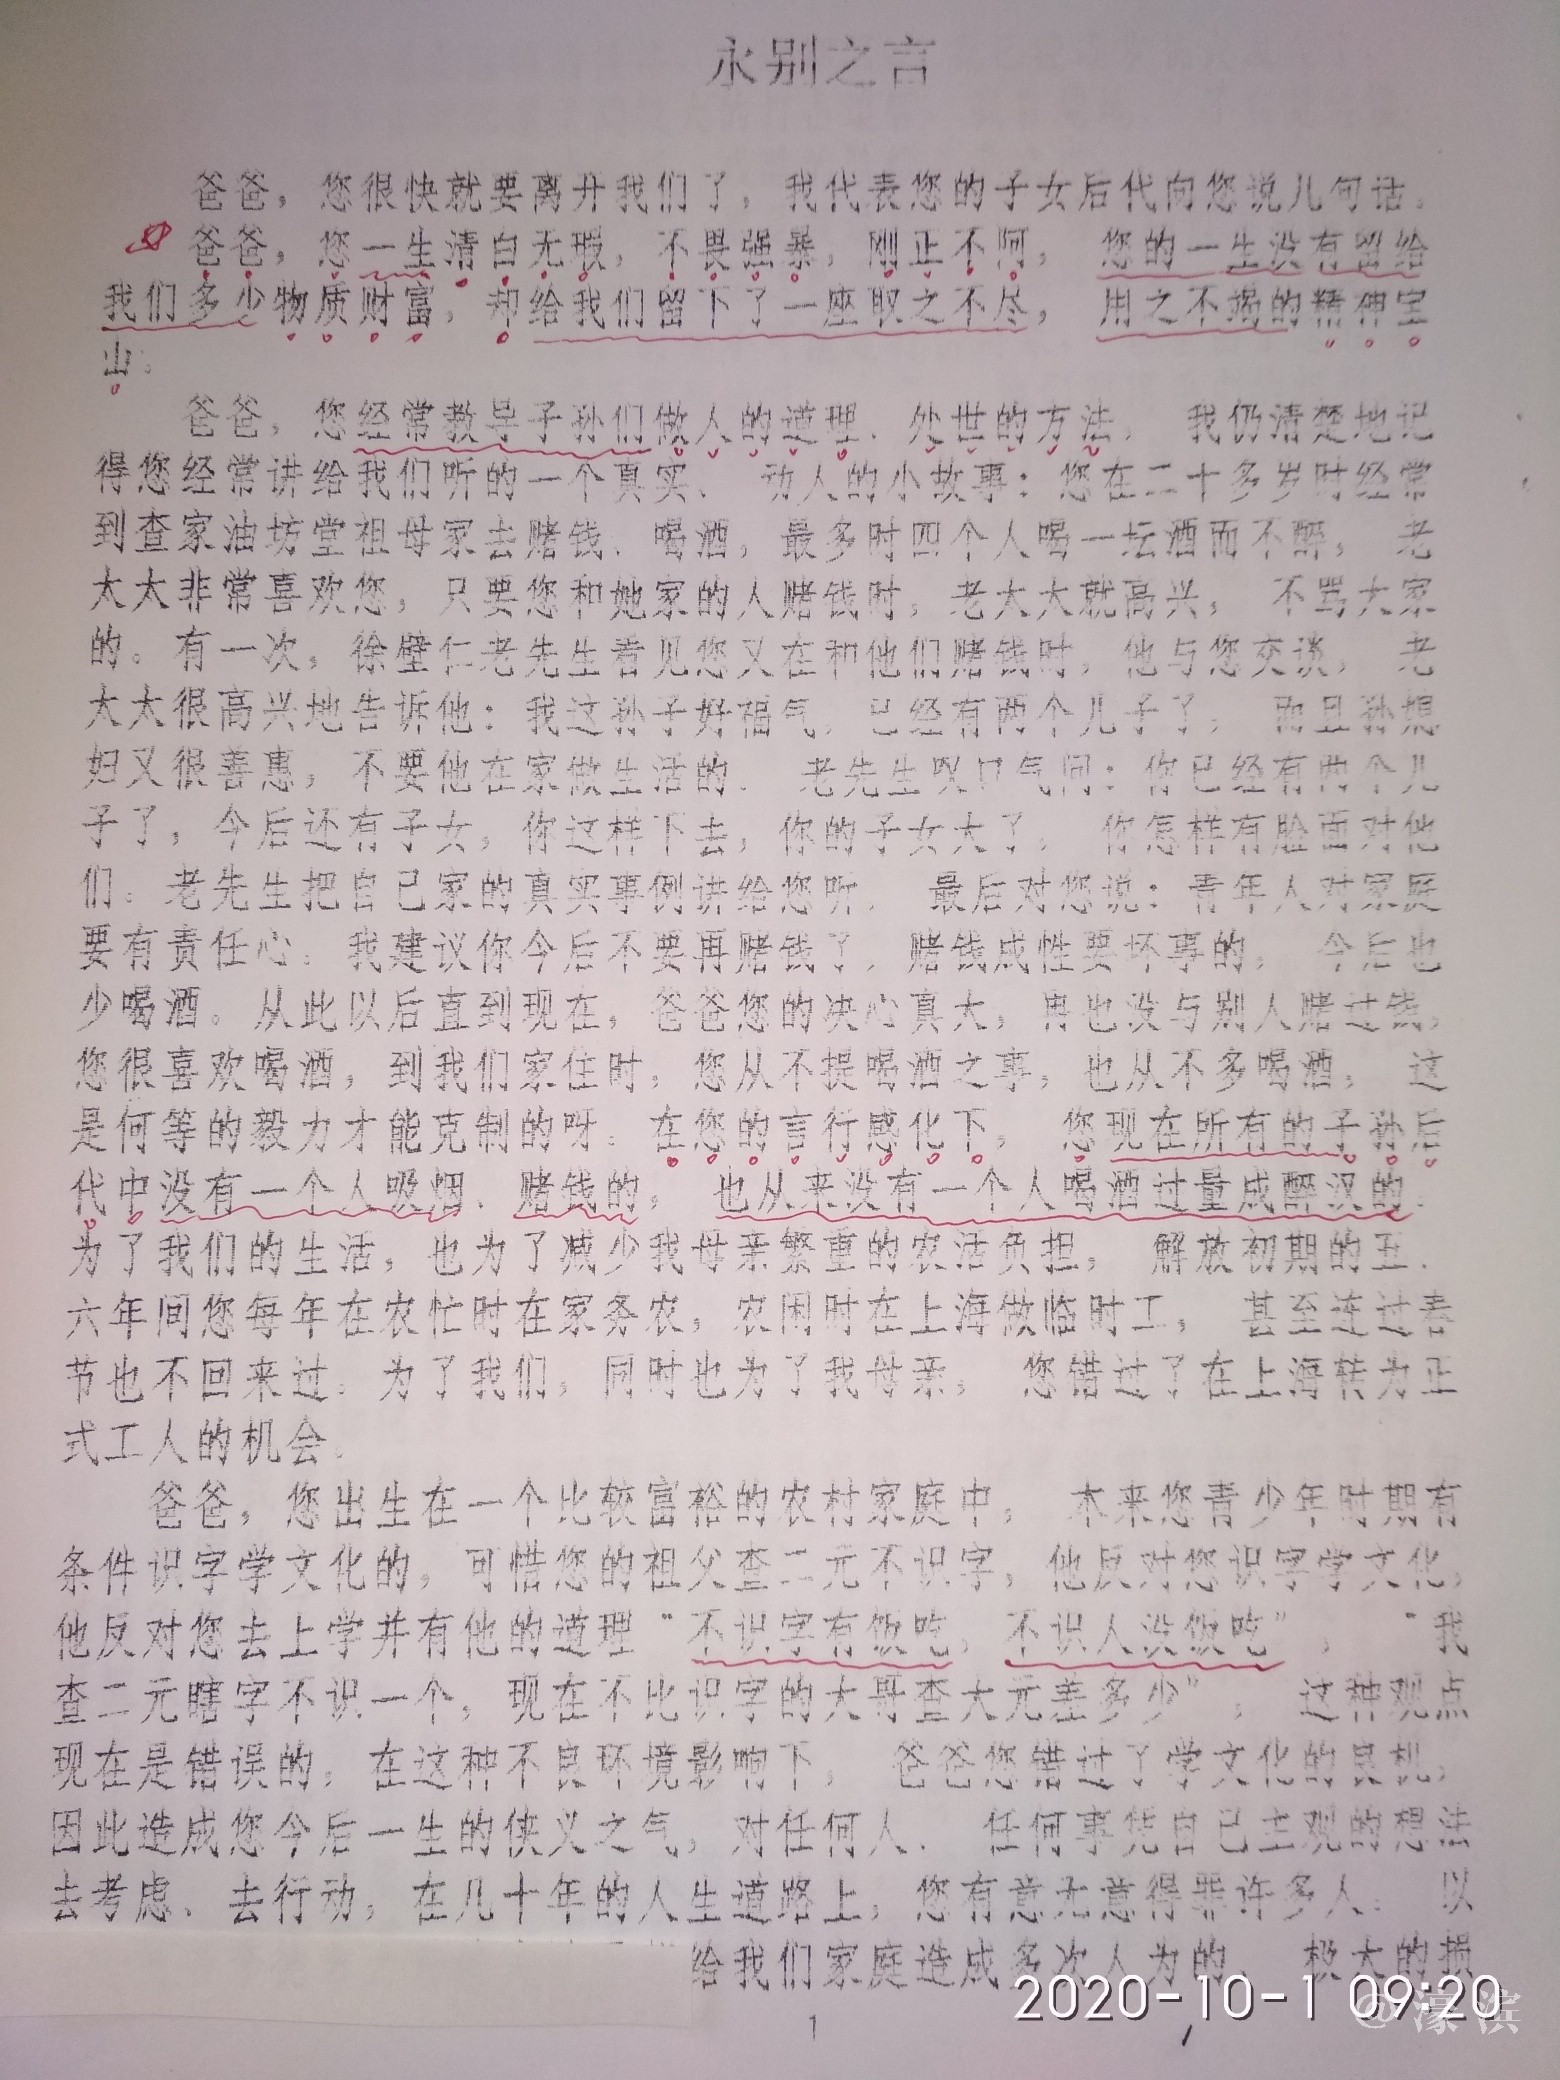 永别之言
爸爸，您很快就要离开我们了，我代表您的子女后代向您说几句话。
爸爸，您一生清白无瑕，不畏强暴，刚正不阿，您的一生没有留给
我们多少物质财富，却给我们留下了一座取之不尽，用之不竭的精神宝
山。
爸爸，您经常教导子孙们做人的道理、处世的方法，我仍清楚地记
得您经常讲给我们听的一个真实、动人的小故事：您在二十多岁时经常
到查家油坊堂祖母家去赌钱、喝酒，最多时四个人喝一坛酒而不醉，老
太太非常喜欢您，只要您和她家的人赌钱时，老太太就高兴，不骂大家
的。有一次，徐璧仁老先生看见您又在和他们赌钱时，他与您交谈，老
太太很高兴地告诉他：我这孙子好福气，已经有两个儿子了，而且孙媳
妇又很善惠，不要他在家做生活的。老先生叹口气问：你已经有两个儿
子了，今后还有子女，你这样下去，你的子女大了，你怎样有脸面对他
们。老先生把自己家的真实事例讲给您听，最后对您说：青年人对家庭
要有责任心。我建议你今后不要再赌钱了，赌钱成性要坏事的，今后也
少喝酒。从此以后直到现在，爸爸您的决心真大，再也没与别人赌过钱，
您很喜欢喝酒，到我们家住时，您从不提喝酒之事，也从不多喝酒，这
是何等的毅力才能克制的呀。在您的言行感化下，您现在所有的子孙后
代中没有一个人吸烟、赌钱的，也从来没有一个人喝酒过量成醉汉的。
为了我们的生活，也为了减少我母亲繁重的农活负担，解放初期的五、
六年间您每年在农忙时在家务农，农闲时在上海做临时工，甚至连过春
节也不回来过。为了我们，同时也为了我母亲，您错过了在上海转为正
式工人的机会。
爸爸，您出生在一个比较富裕的农村家庭中，本来您青少年时期有
条件识字学文化的，可惜您的祖父查二元不识字，他反对您识字学文化，
他反对您去上学并有他的道理“不识字有饭吃，不识人没饭吃”，“我
查二元瞎字不识一个，现在不比识字的大哥查大元差多少”，这种观点
现在是错误的，在这种不良环境影响下，爸爸您错过了学文化的良机，
因此造成您今后一生的侠义之气，对任何人、任何事凭自己主观的想法
去考虑、去行动，在几十年的人生道路上，您有意无意得罪许多人。以
给我们家庭造成多次人为的、极大的损
1
2020-10-1 09:20
@濠滨